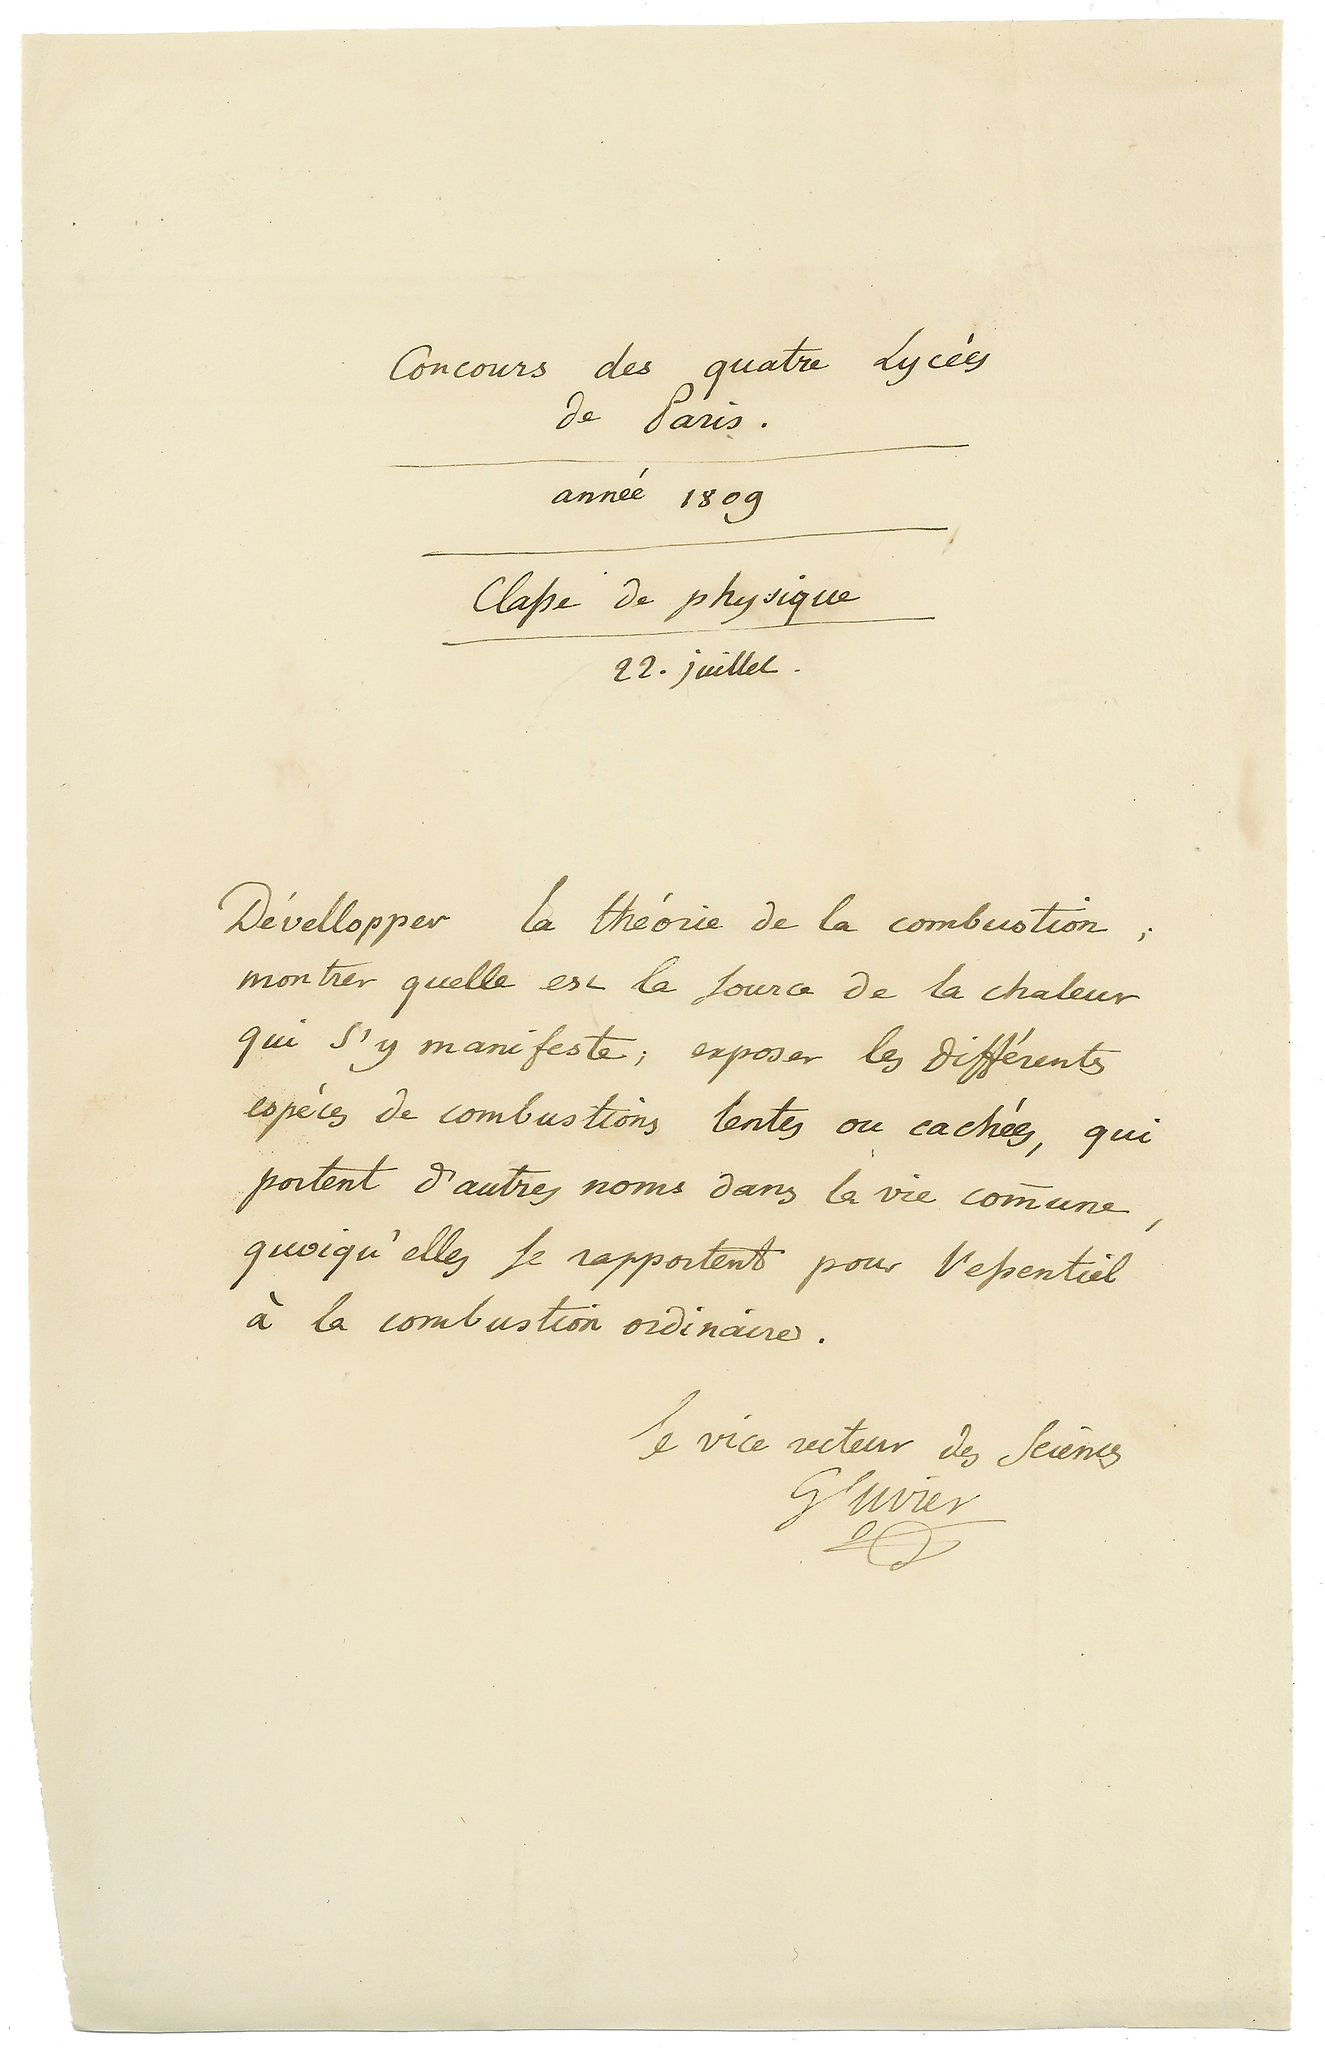 Concours des quatre Lycées
de Paris.
année 1809
Classe de physique
22. juillet.
Dévellopper la théorie de la combustion ;
montrer quelle est la source de la chaleur
qui s'y manifeste ; exposer les différentes
espèces de combustions lentes ou cachées, qui
portent d'autres noms dans la vie com̄une,
quoiqu'elles se rapportent pour l'essentiel
à la combustion ordinaire.
le vice recteur des Sciences
G Cuvier